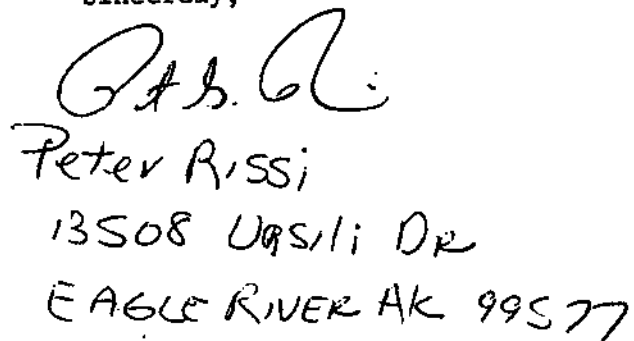 Sincerely,
Peter Rissi
13508 Vasili DR
EAGLE RIVER AK 99577